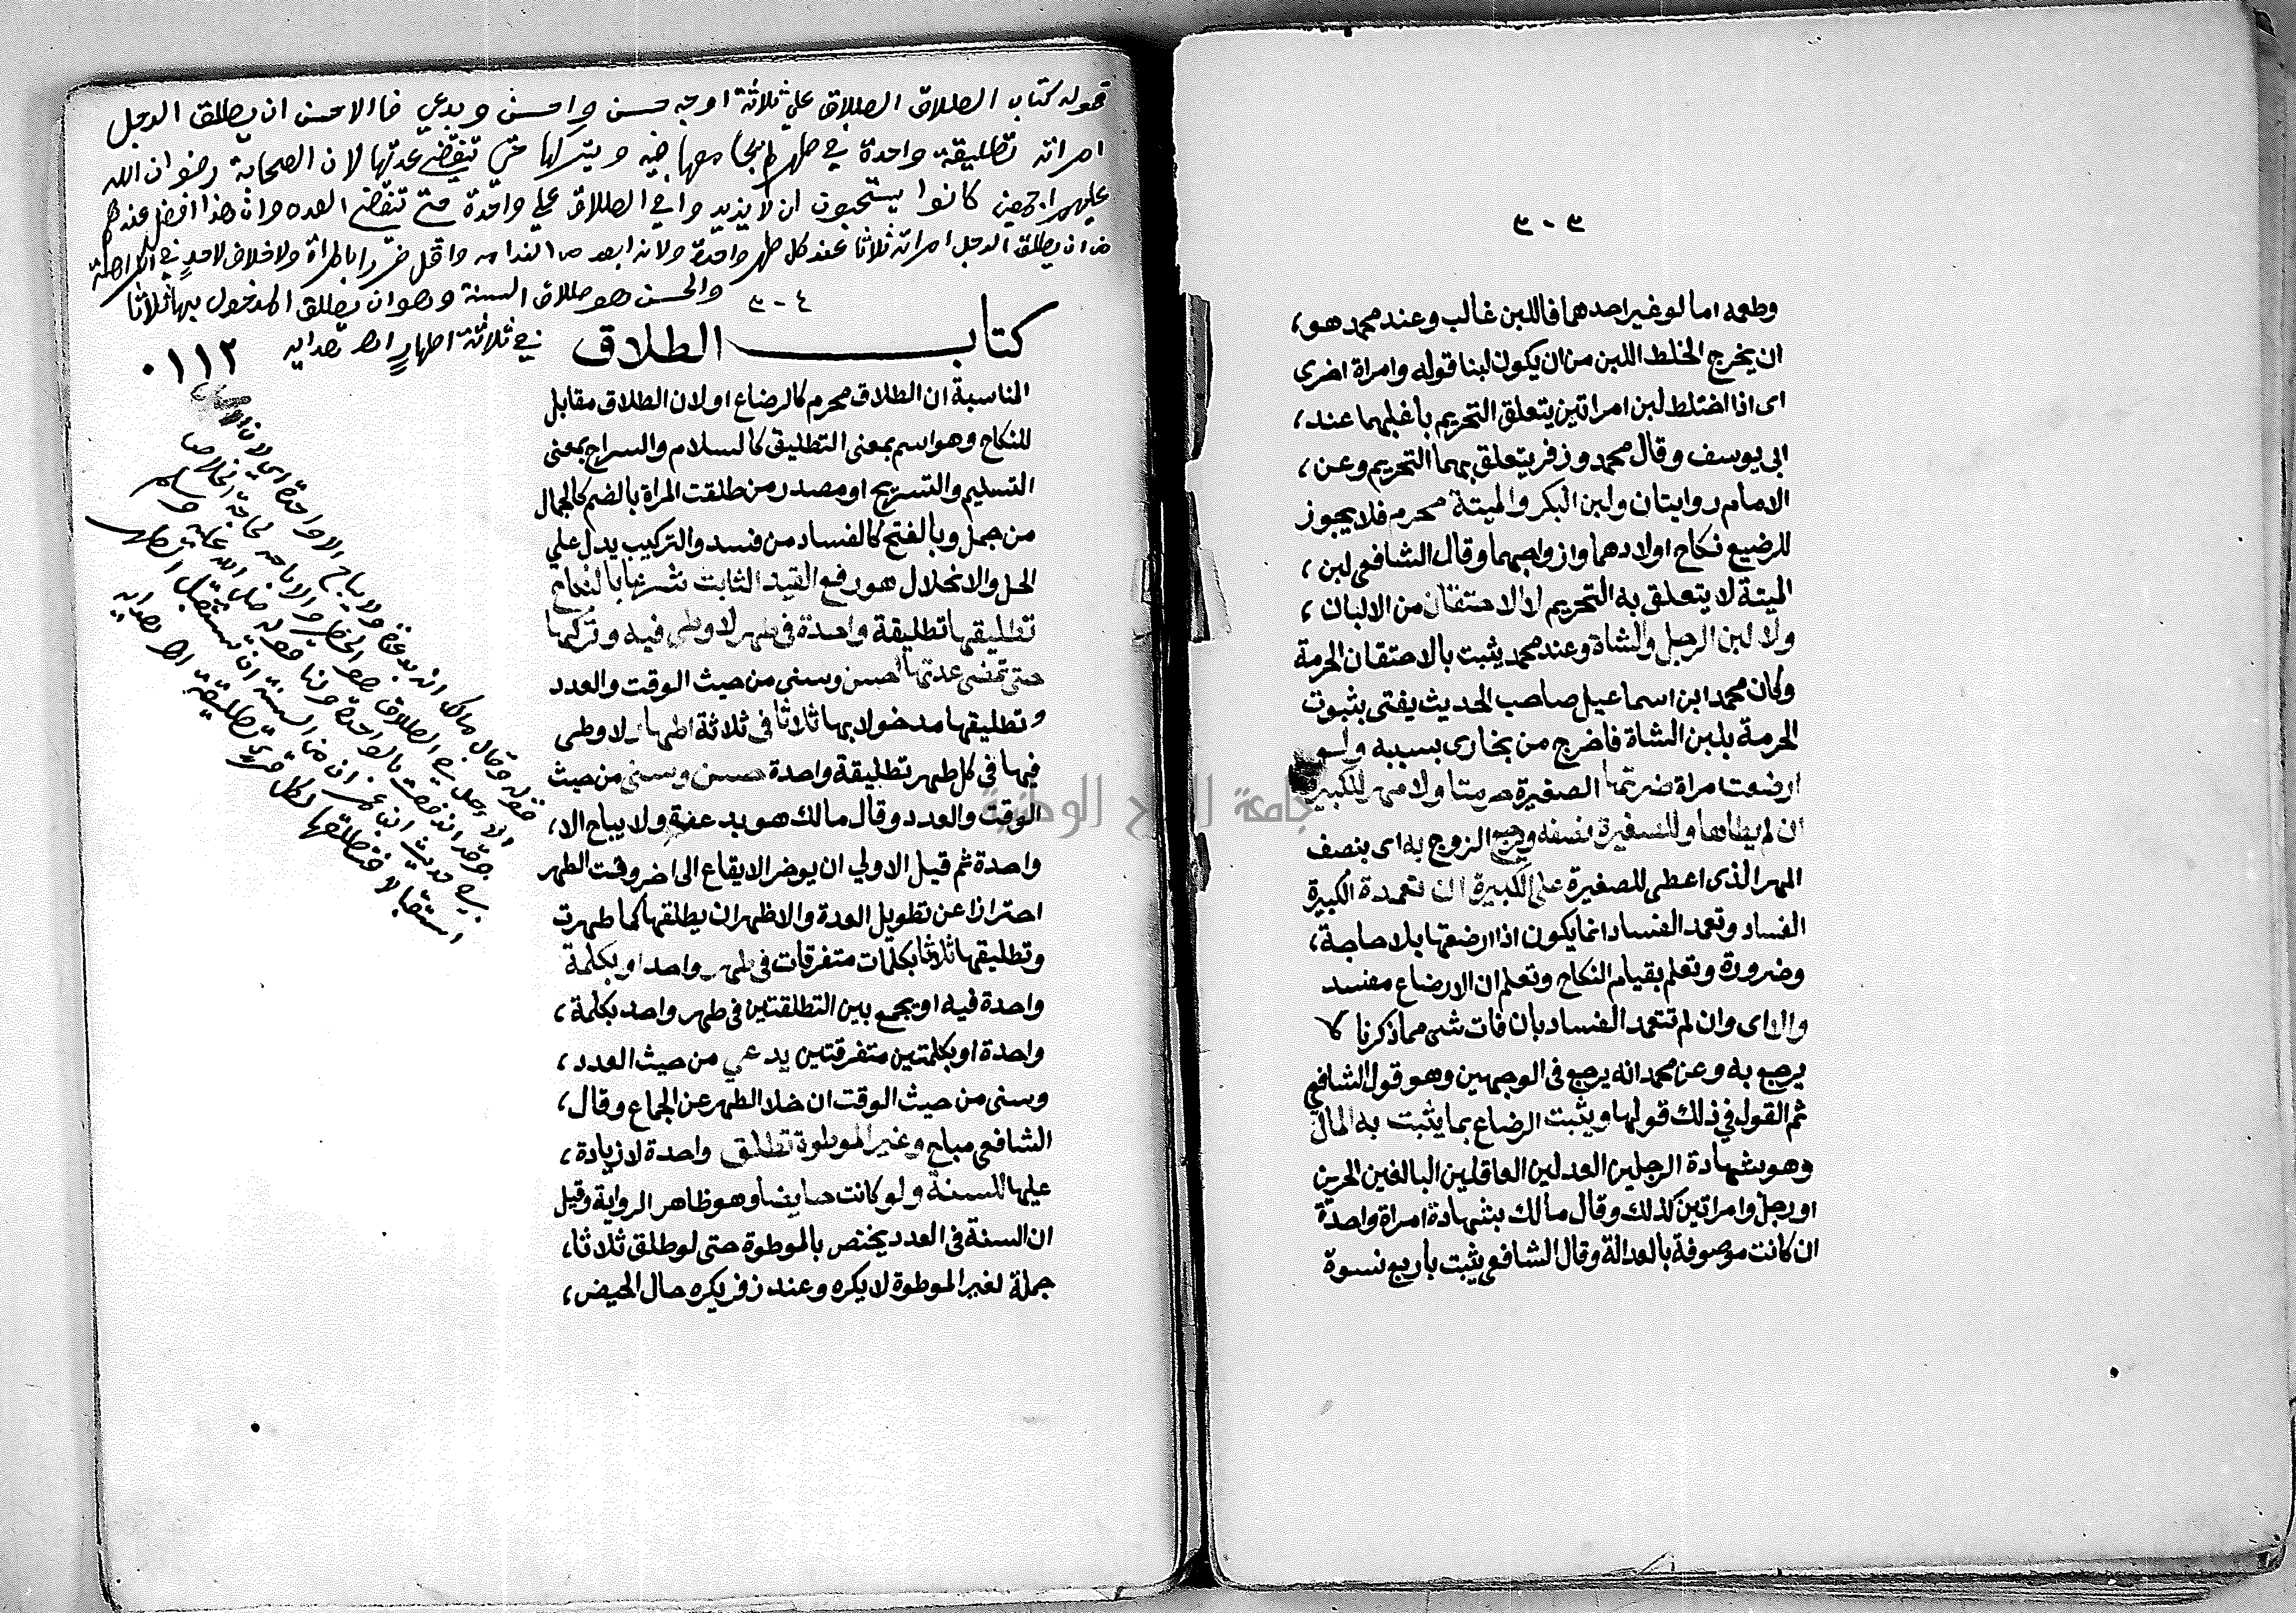 ٣٠٣
وطعمه اما لو غير احدهما فاللبن غالب وعند محمد هو،
ان يخرج الخلط اللبن من ان يكون لبنا قوله وامراة اخرى
اى اذا اختلط لبن امراتين يتعلق التحريم باغلبهما عند،
ابى يوسف وقال محمد وزفر يتعلق بهما التحريم وعن،
الامام روايتان ولبن البكر والميتة محرم فلا يجوز
للرضيع نكاح اولادهما وازواجهما وقال الشافعى لبن،
الميتة لا يتعلق به التحريم لا الاحتقان من الالبان،
ولا لبن الرجل والشاة وعند محمد يثبت بالاحتقان الحرمة
وكان محمد ابن اسماعيل صاحب الحديث يفتى بثبوت
الحرمة بلبن الشاة فاخرج من بخارى بسببه ولو
ارضعت امراة ضرتها الصغيرة حرمتا ولا مهر للكبيرة
ان لم يطاها وللصغيرة نصفه ويرجع الزوج به اى بنصف
المهر الذى اعطى للصغيرة على الكبيرة ان تعمدة الكبيرة
الفساد وتعمد الفساد انما يكون اذا ارضعتها بلا حاجة،
وضرورة وتعلم بقيام النكاح وتعلم ان الارضاع مفسد
والا اى وان لم تتعمد الفساد بان فات شى مما ذكرنا لا
يرجع به وعن محمد انه يرجع فى الوجهين وهو قول الشافعي
ثم القول في ذلك قولها ويثبت الرضاع بما يثبت به المال
وهو شهادة الرجلين العدلين العاقلين البالغين الحرين
او رجل وامراتين كذلك وقال مالك بشهادة امراة واحدة
ان كانت موصوفة بالعدالة وقال الشافعى يثبت باربع نسوة
قوله كتاب الطلاق الطلاق علي ثلاثة اوجه حسن واحسن وبدعي فالاحسن ان يطلق الرجل
امراته تطليقة واحدة في طهر لم يجامعها فيه ويتركها حتي تنقضي عدتها لان الصحابة رضوان الله
عليهم اجمعين كانوا يستحبون ان لا يزيدوا في الطلاق علي واحدة حتي تنقضي العده وان هذا افضل عندهم
من ان يطلق الرجل امراته ثلاثا عند كل طهر واحدة ولانه ابعد من الندامه واقل ضررا بالمراة ولا خلاف لاحد في الكراهة
والحسن هو طلاق السنة وهو ان يطلق المدخول بها ثلاثا
في ثلاثة اطهار اه هدايه
٣٠٤
٠١١٢
كتاب الطلاق
المناسبة ان الطلاق محرم كالرضاع اولان الطلاق مقابل
للنكاح وهو اسم بمعنى التطليق كالسلام والسراح بمعنى
التسليم والتسريح او مصدر من طلقت المراة بالضم كالجمال
من جمل وبالفتح كالفساد من فسد والتركيب يدل علي
الحل والانحلال هو رفع القيد الثابت شرعا بالنكاح
تطليقها تطليقة واحدة فى طهر لا وطى فيه وتركها
حتى تمضى عدتها احسن وسنى من حيث الوقت والعدد
وتطليقها مدخولا بها ثلاثا فى ثلاثة اطهار لا وطى
فيها فى كل طهر تطليقة واحدة حسن وسنى من حيث
الوقت والعدد وقال مالك هو بدعة ولا يباح الا،
واحدة ثم قيل الاولي ان يوخر الايقاع الى اخر وقت الطهر
احترازا عن تطويل العدة والاظهر ان يطلقها كما طهرت
وتطليقها ثلاثا بكلمات متفرقات فى طهر واحد او بكلمة
واحدة فيه او يجمع بين التطلقتين فى طهر واحد بكلمة،
واحدة او بكلمتين متفرقتين بدعي من حيث العدد،
وسنى من حيث الوقت ان خلا الطهر عن الجماع وقال،
الشافعى مباح وغير الموطوة تطلق واحدة لا زيادة،
عليها للسنة ولو كانت حايضا وهو ظاهر الرواية وقيل
ان السنة فى العدد يختص بالموطوة حتى لو طلق ثلاثا،
جملة لغير الموطوة لا يكره وعند زفر يكره حال الحيض،
قوله وقال مالك انه بدعة ولا يباح الا واحدة اي لان
الاصل في الطلاق هو الحظر والاباحه لحاجة الخلاص
وقد اندفعت بالواحدة ولنا قوله صلي الله عليه وسلم
في حديث ابن عمر ان من السنة ان تستقبل الطهر
استقبالا فتطلقها لكل قرء تطليقة اه هدايه
جامعة النجاح الوطنية